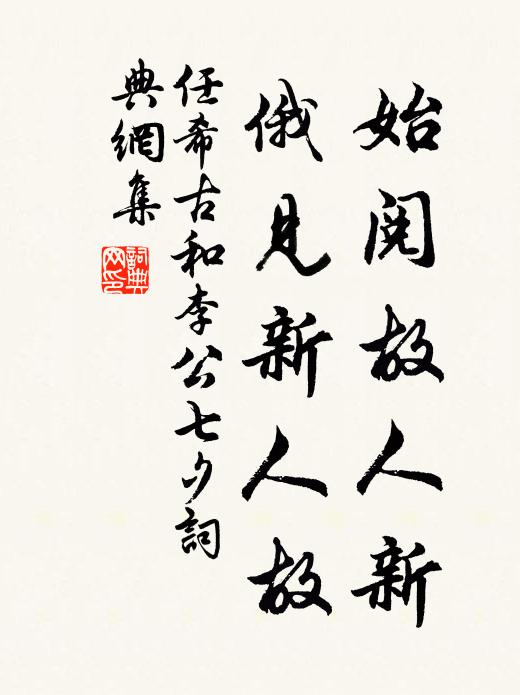 始閱故人新
俄見新人故
任希古和李公七夕詞
典網集
詞典网印